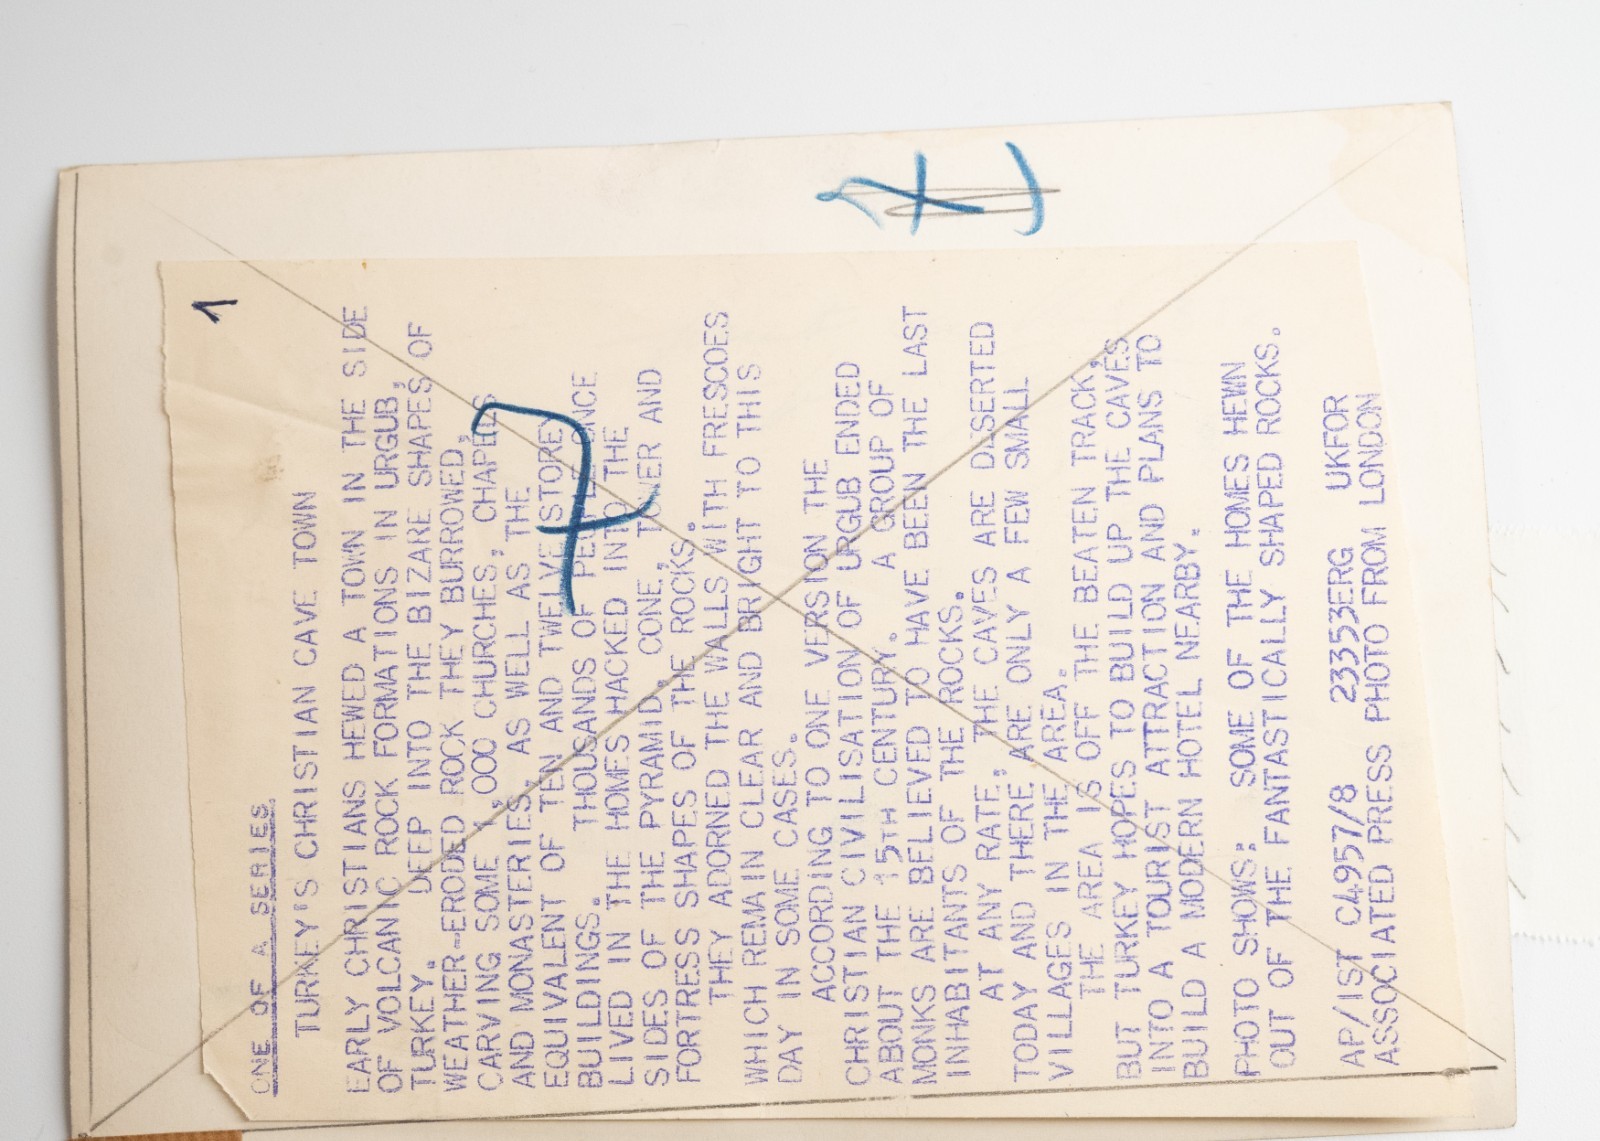 1
ONE OF A SERIES
TURKEY'S CHRISTIAN CAVE TOWN
EARLY CHRISTIANS HEWED A TOWN IN THE SIDE
OF VOLCANIC ROCK FORMATIONS IN URGUB,
TURKEY. DEEP INTO THE BIZARE SHAPES OF
WEATHER-ERODED ROCK THEY BURROWED,
CARVING SOME 1,000 CHURCHES, CHAPELS
AND MONASTERIES, AS WELL AS THE
EQUIVALENT OF TEN AND TWELVE STOREY
BUILDINGS. THOUSANDS OF
LIVED IN THE HOMES HACKED INTO THE
SIDES OF THE PYRAMID, CONE, TOWER AND
FORTRESS SHAPES OF THE ROCKS.
THEY ADORNED THE WALLS WITH FRESCOES
WHICH REMAIN CLEAR AND BRIGHT TO THIS
DAY IN SOME CASES.
ACCORDING TO ONE VERSION THE
CHRISTIAN CIVILISATION OF URGUB ENDED
ABOUT THE 15TH CENTURY. A GROUP OF
MONKS ARE BELIEVED TO HAVE BEEN THE LAST
INHABITANTS OF THE ROCKS.
AT ANY RATE, THE CAVES ARE DESERTED
TODAY AND THERE ARE ONLY A FEW SMALL
VILLAGES IN THE AREA.
THE AREA IS OFF THE BEATEN TRACK,
BUT TURKEY HOPES TO BUILD UP THE CAVES
INTO A TOURIST ATTRACTION AND PLANS TO
BUILD A MODERN HOTEL NEARBY.
PHOTO SHOWS: SOME OF THE HOMES HEWN
OUT OF THE FANTASTICALLY SHAPED ROCKS.
AP/IST C4957/8 23353ERG UKFOR
ASSOCIATED PRESS PHOTO FROM LONDON